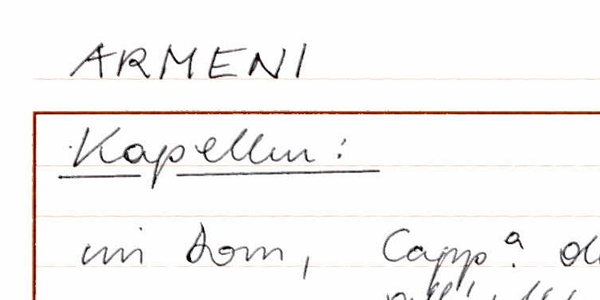 ARMENI
Kapellen:
im Dom, Capp.ª